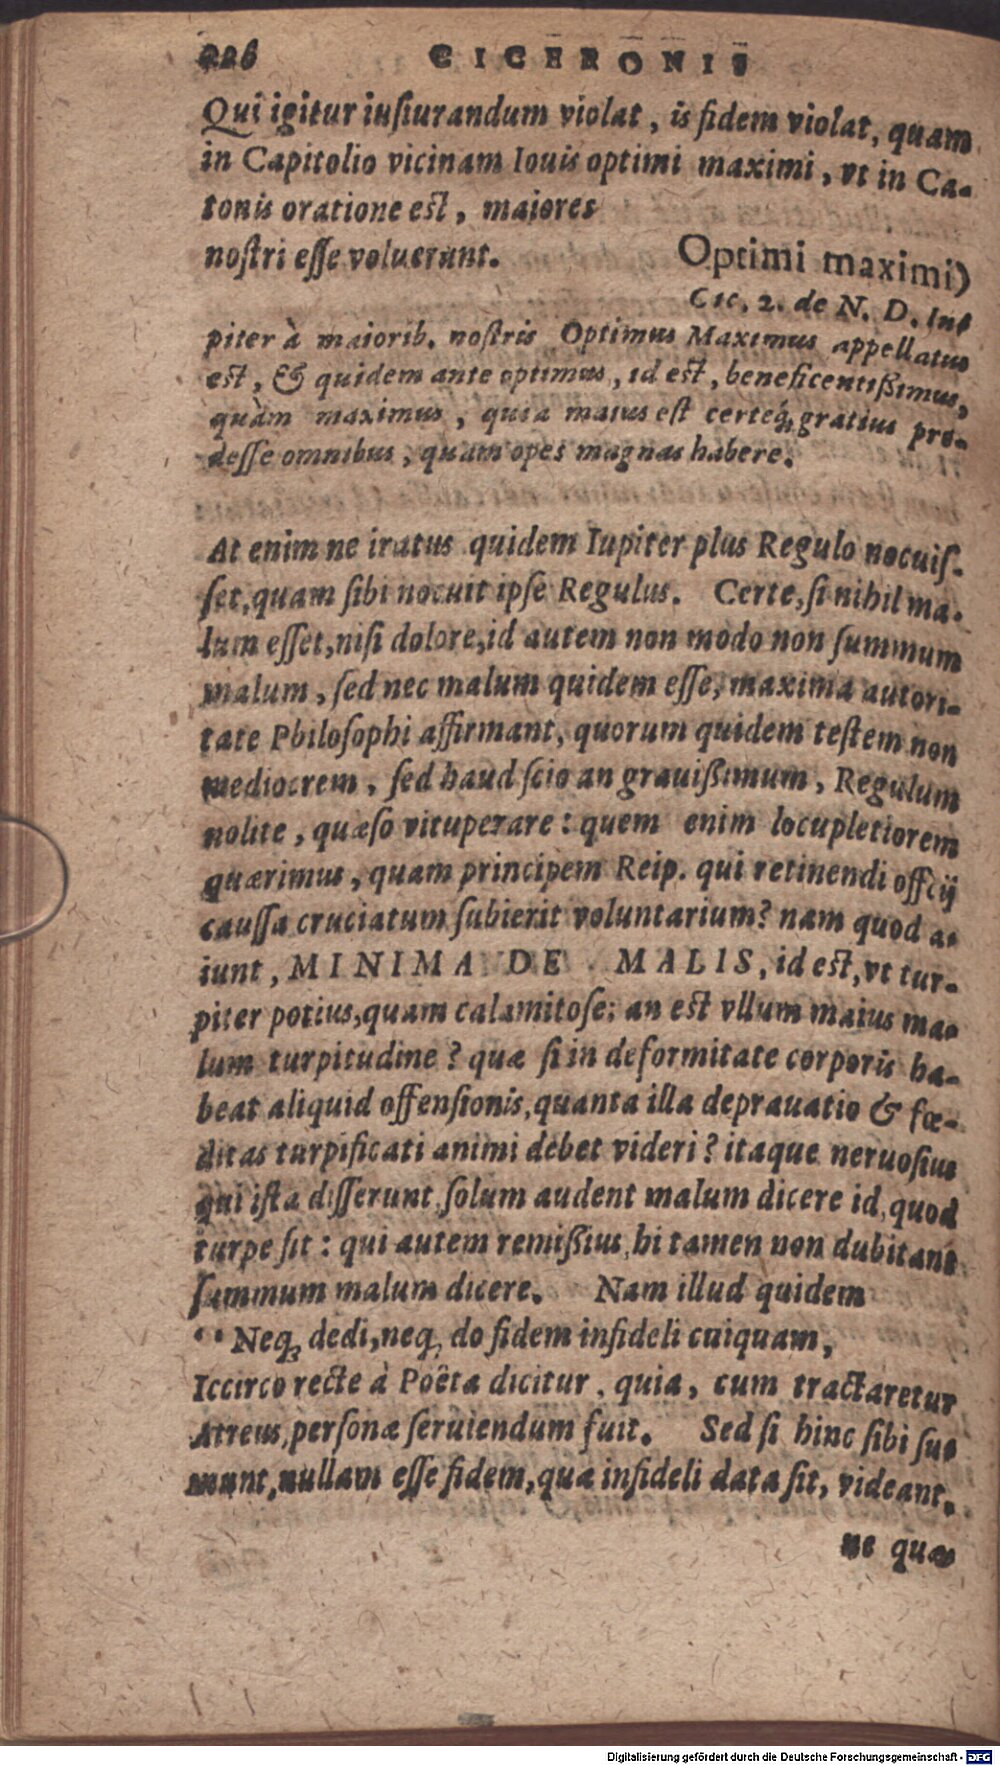 226 CICERONIS
Qui igitur iuſiurandum violat, is fidem violat, quam
in Capitolio vicinam Iouis optimi maximi, vt in Ca-
tonis oratione est, maiores
noſtri eſſe voluerunt.
Optimi maximi)
Cic. 2. de N. D. Iup
piter à maiorib. noſtris Optimus Maximus appellatus
est, & quidem ante optimus, id est, beneficentißimus,
quàm maximus, quia maius est certeq́; gratius pro-
deſſe omnibus, quam opes magnas habere.
At enim ne iratus quidem Iupiter plus Regulo nocuiſ-
ſet, quam ſibi nocuit ipſe Regulus. Certe, ſi nihil ma-
lum eſſet, niſi dolore, id autem non modo non ſummum
malum, ſed nec malum quidem eſſe, maxima autori-
tate Philoſophi affirmant, quorum quidem teſtem non
mediocrem, ſed haud ſcio an grauißimum, Regulum
nolite, quæſo vituperare: quem enim locupletiorem
quærimus, quam principem Reip. qui retinendi officij
cauſſa cruciatum ſubierit voluntarium? nam quod a-
iunt, MINIMA DE MALIS, id est, vt tur-
piter potius, quam calamitoſe; an est vllum maius ma-
lum turpitudine? quæ ſi in deformitate corporis ha-
beat aliquid offenſionis, quanta illa deprauatio & fœ-
ditas turpificati animi debet videri? itaque neruoſius
qui iſta diſſerunt, ſolum audent malum dicere id, quod
turpe ſit: qui autem remißius, hi tamen non dubitant
ſummum malum dicere. Nam illud quidem
‘‘ Neq; dedi, neq; do fidem infideli cuiquam,
Iccirco recte à Poêta dicitur, quia, cum tractaretur
Atreus, perſonæ ſeruiendum fuit. Sed ſi hinc ſibi ſu-
munt, nullam eſſe fidem, quæ infideli data ſit, videant,
ne quæ
Digitalisierung gefördert durch die Deutsche Forschungsgemeinschaft - DFG